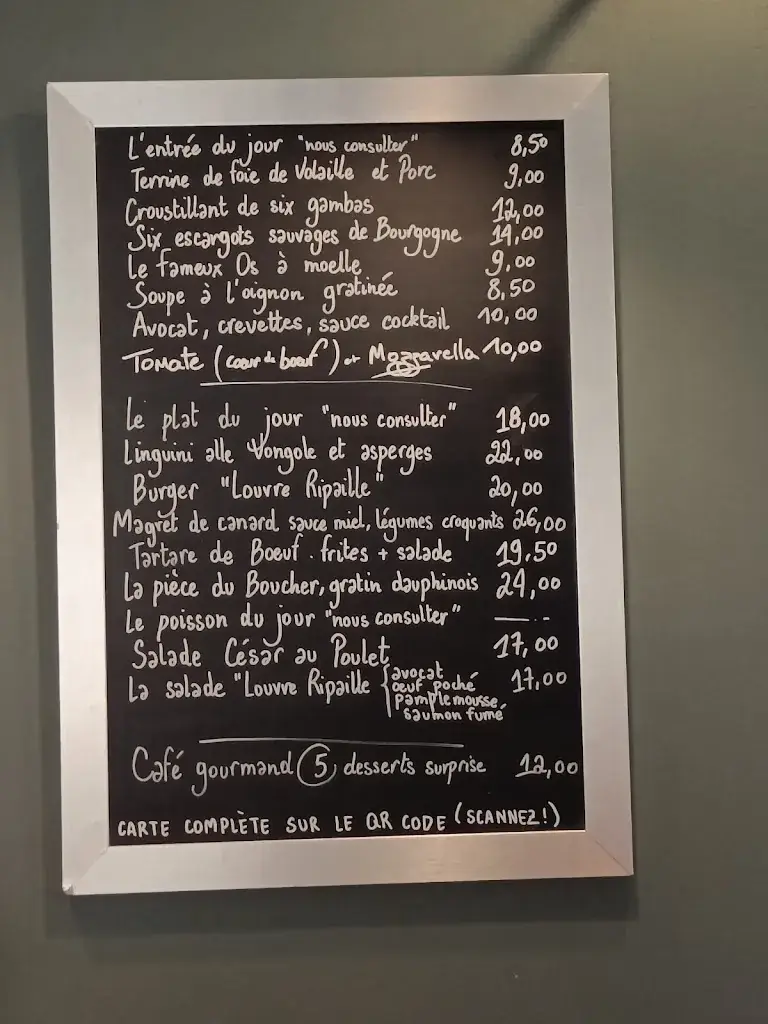 L'entrée du jour "nous consulter" 8,50
Terrine de foie de Volaille et Porc 9,00
Croustillant de six gambas 12,00
Six escargots sauvages de Bourgogne 14,00
Le fameux Os à moelle 9,00
Soupe à l'oignon gratinée 8,50
Avocat, crevettes, sauce cocktail 10,00
Tomate (coeur de boeuf) et Mozzarella 10,00
Le plat du jour "nous consulter" 18,00
Linguini alle Vongole et asperges 22,00
Burger "Louvre Ripaille" 20,00
Magret de canard sauce miel, légumes croquants 26,00
Tartare de Boeuf. frites + salade 19,50
La pièce du Boucher, gratin dauphinois 24,00
Le poisson du jour "nous consulter" —.-
Salade César au Poulet 17,00
La salade "Louvre Ripaille { avocat 17,00
œuf poché
pamplemousse
saumon fumé
Café gourmand 5 desserts surprise 12,00
CARTE COMPLÈTE SUR LE QR CODE (SCANNEZ!)